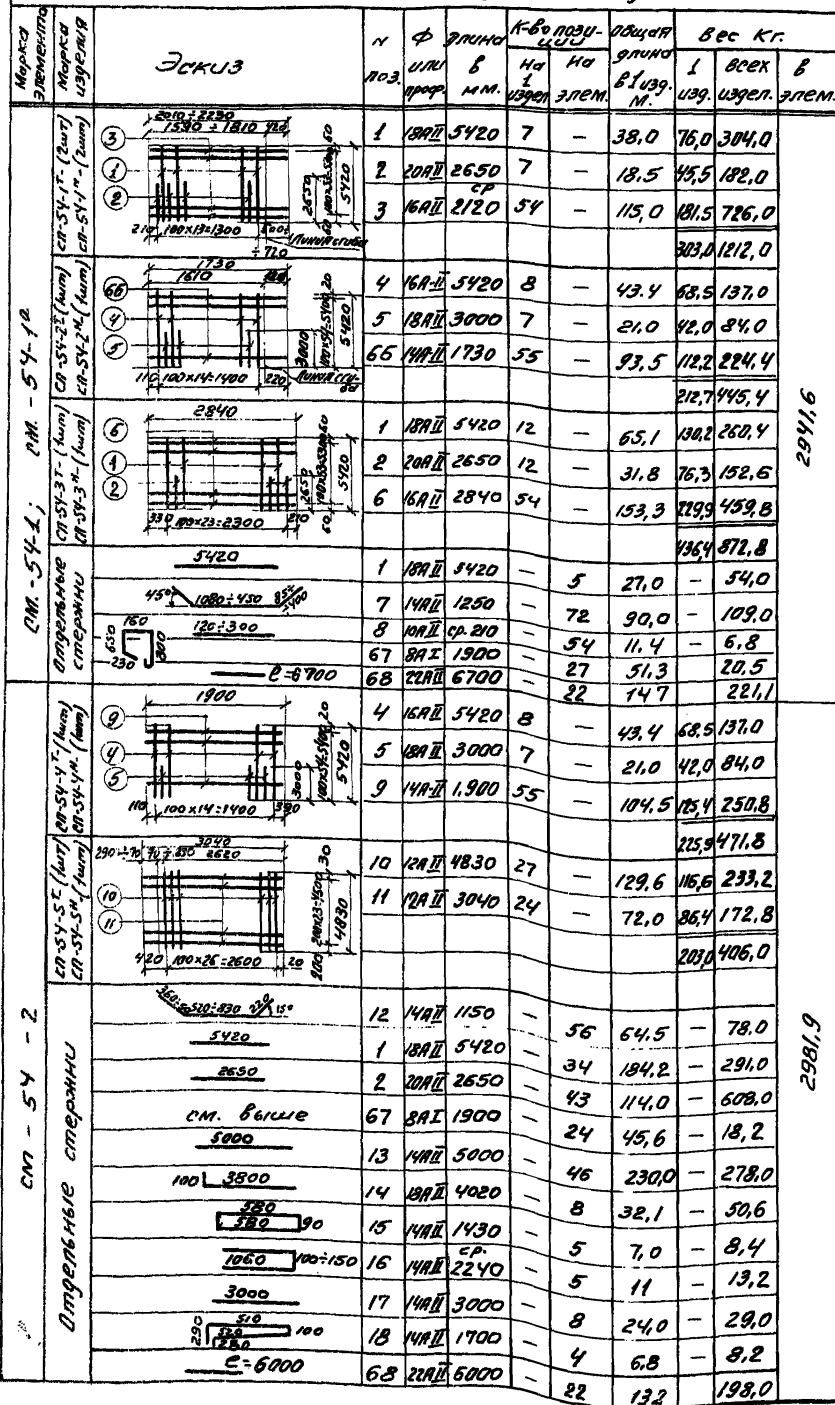 Марка элемента
Марка изделия
Эскиз
N поз.
Ф или проф.
Длина в мм.
К-во позиции
На 1 издел
На элем.
Общая длина в 1 изд. М.
Вес Кг.
1 изд.
всех издел.
в элем.
СМ.-54-1; СМ.-54-1а
2941,6
СП-54-1т- (2шт)
СП-54-1н- (2шт)
2010÷2230
1590÷1810 420
3
1
2
2650
5420
210 100х13=1300
÷720
Линия сгиба
1 18АII 5420 7 — 38,0 76,0 304,0
2 20АII 2650 7 — 18.5 45,5 182.0
3 16АII ср 2120 54 — 115,0 181.5 726,0
303,0 1212,0
СП-54-2т (1шт)
СП-54-2н (1шт)
1730
1610
66
4
5
3000
100х54=5400 20
5420
110 100х14=1400 220
Линия сгиба
4 16А-II 5420 8 — 43.4 68.5 137.0
5 18АII 3000 7 — 21.0 42,0 84,0
66 14А-II 1730 55 — 93.5 112,2 224.4
212,7 445,4
СП-54-3т- (1шт)
СП-54-3н- (1шт)
2840
6
1
2
2650
100х53=5300 60
5420
330 100х23=2300 210
60
1 18АII 5420 12 — 65,1 130,2 260,4
2 20АII 2650 12 — 31.8 76,3 152,6
6 16АII 2840 54 — 153,3 229,9 459,8
436,4 872,8
Отдельные стержни
5420
1 18АII 5420 — 5 27,0 — 54,0
45° 1080÷450
7 14АII 1250 — 72 90,0 — 109.0
120÷300
8 10АII ср. 210 — 54 11.4 — 6.8
160
650
300
230
67 8АI 1900 — 27 51.3 20,5
ℓ=6700
68 22АII 6700 — 22 147 221,1
СП - 54 - 2
2981,9
СП-54-4т-(1шт)
СП-54-4н.(1шт)
1900
9
4
5
3000
100х54=5400 20
5420
110 100х14=1400 390
4 16АII 5420 8 — 43.4 68.5 137.0
5 18АII 3000 7 — 21,0 42,0 84,0
9 14А-II 1.900 55 — 104.5 125,4 250,8
225,9 471.8
СП-54-5т (1шт)
СП-54-5н (1шт)
3040
2620
10
11
200 200х23=4600 30
4830
420 100х26=2600 20
10 12АII 4830 27 — 129.6 116,6 233,2
11 12АII 3040 24 — 72,0 86,4 172,8
203,0 406,0
Отдельные стержни
520÷830 15°
12 14АII 1150 — 56 64.5 — 78.0
5420
1 18АII 5420 — 34 184,2 — 291,0
2650
2 20АII 2650 — 43 114,0 — 608,0
см. выше
67 8АI 1900 — 24 45,6 — 18,2
5000
13 14АII 5000 — 46 230,0 — 278.0
100 3800
14 18АII 4020 — 8 32,1 — 50,6
580
580 90
15 14АII 1430 — 5 7,0 — 8,4
1060 100÷150
16 14АII ср. 2240 — 5 11 — 13,2
3000
17 14АII 3000 — 8 24,0 — 29,0
510
290 520 100
280
18 14АII 1700 — 4 6.8 — 8.2
ℓ=6000
68 22АII 6000 — 22 132 198,0